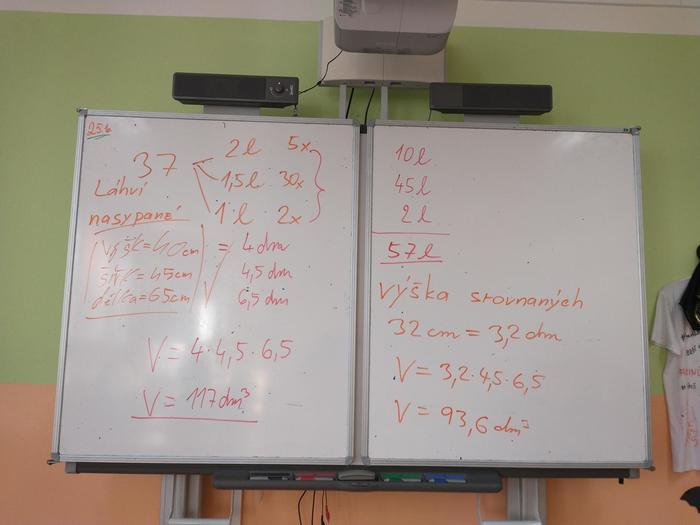 25.6.
37 2l 5x
Láhví 1,5l 30x
nasypané 1l 2x
výšk=40cm = 4 dm
šířk=45cm V 4,5 dm
délka=65cm 6,5 dm
V = 4·4,5·6,5
V = 117dm³
10l
45l
2l
57l
výška srovnaných
32cm = 3,2dm
V = 3,2·4,5·6,5
V = 93,6 dm³